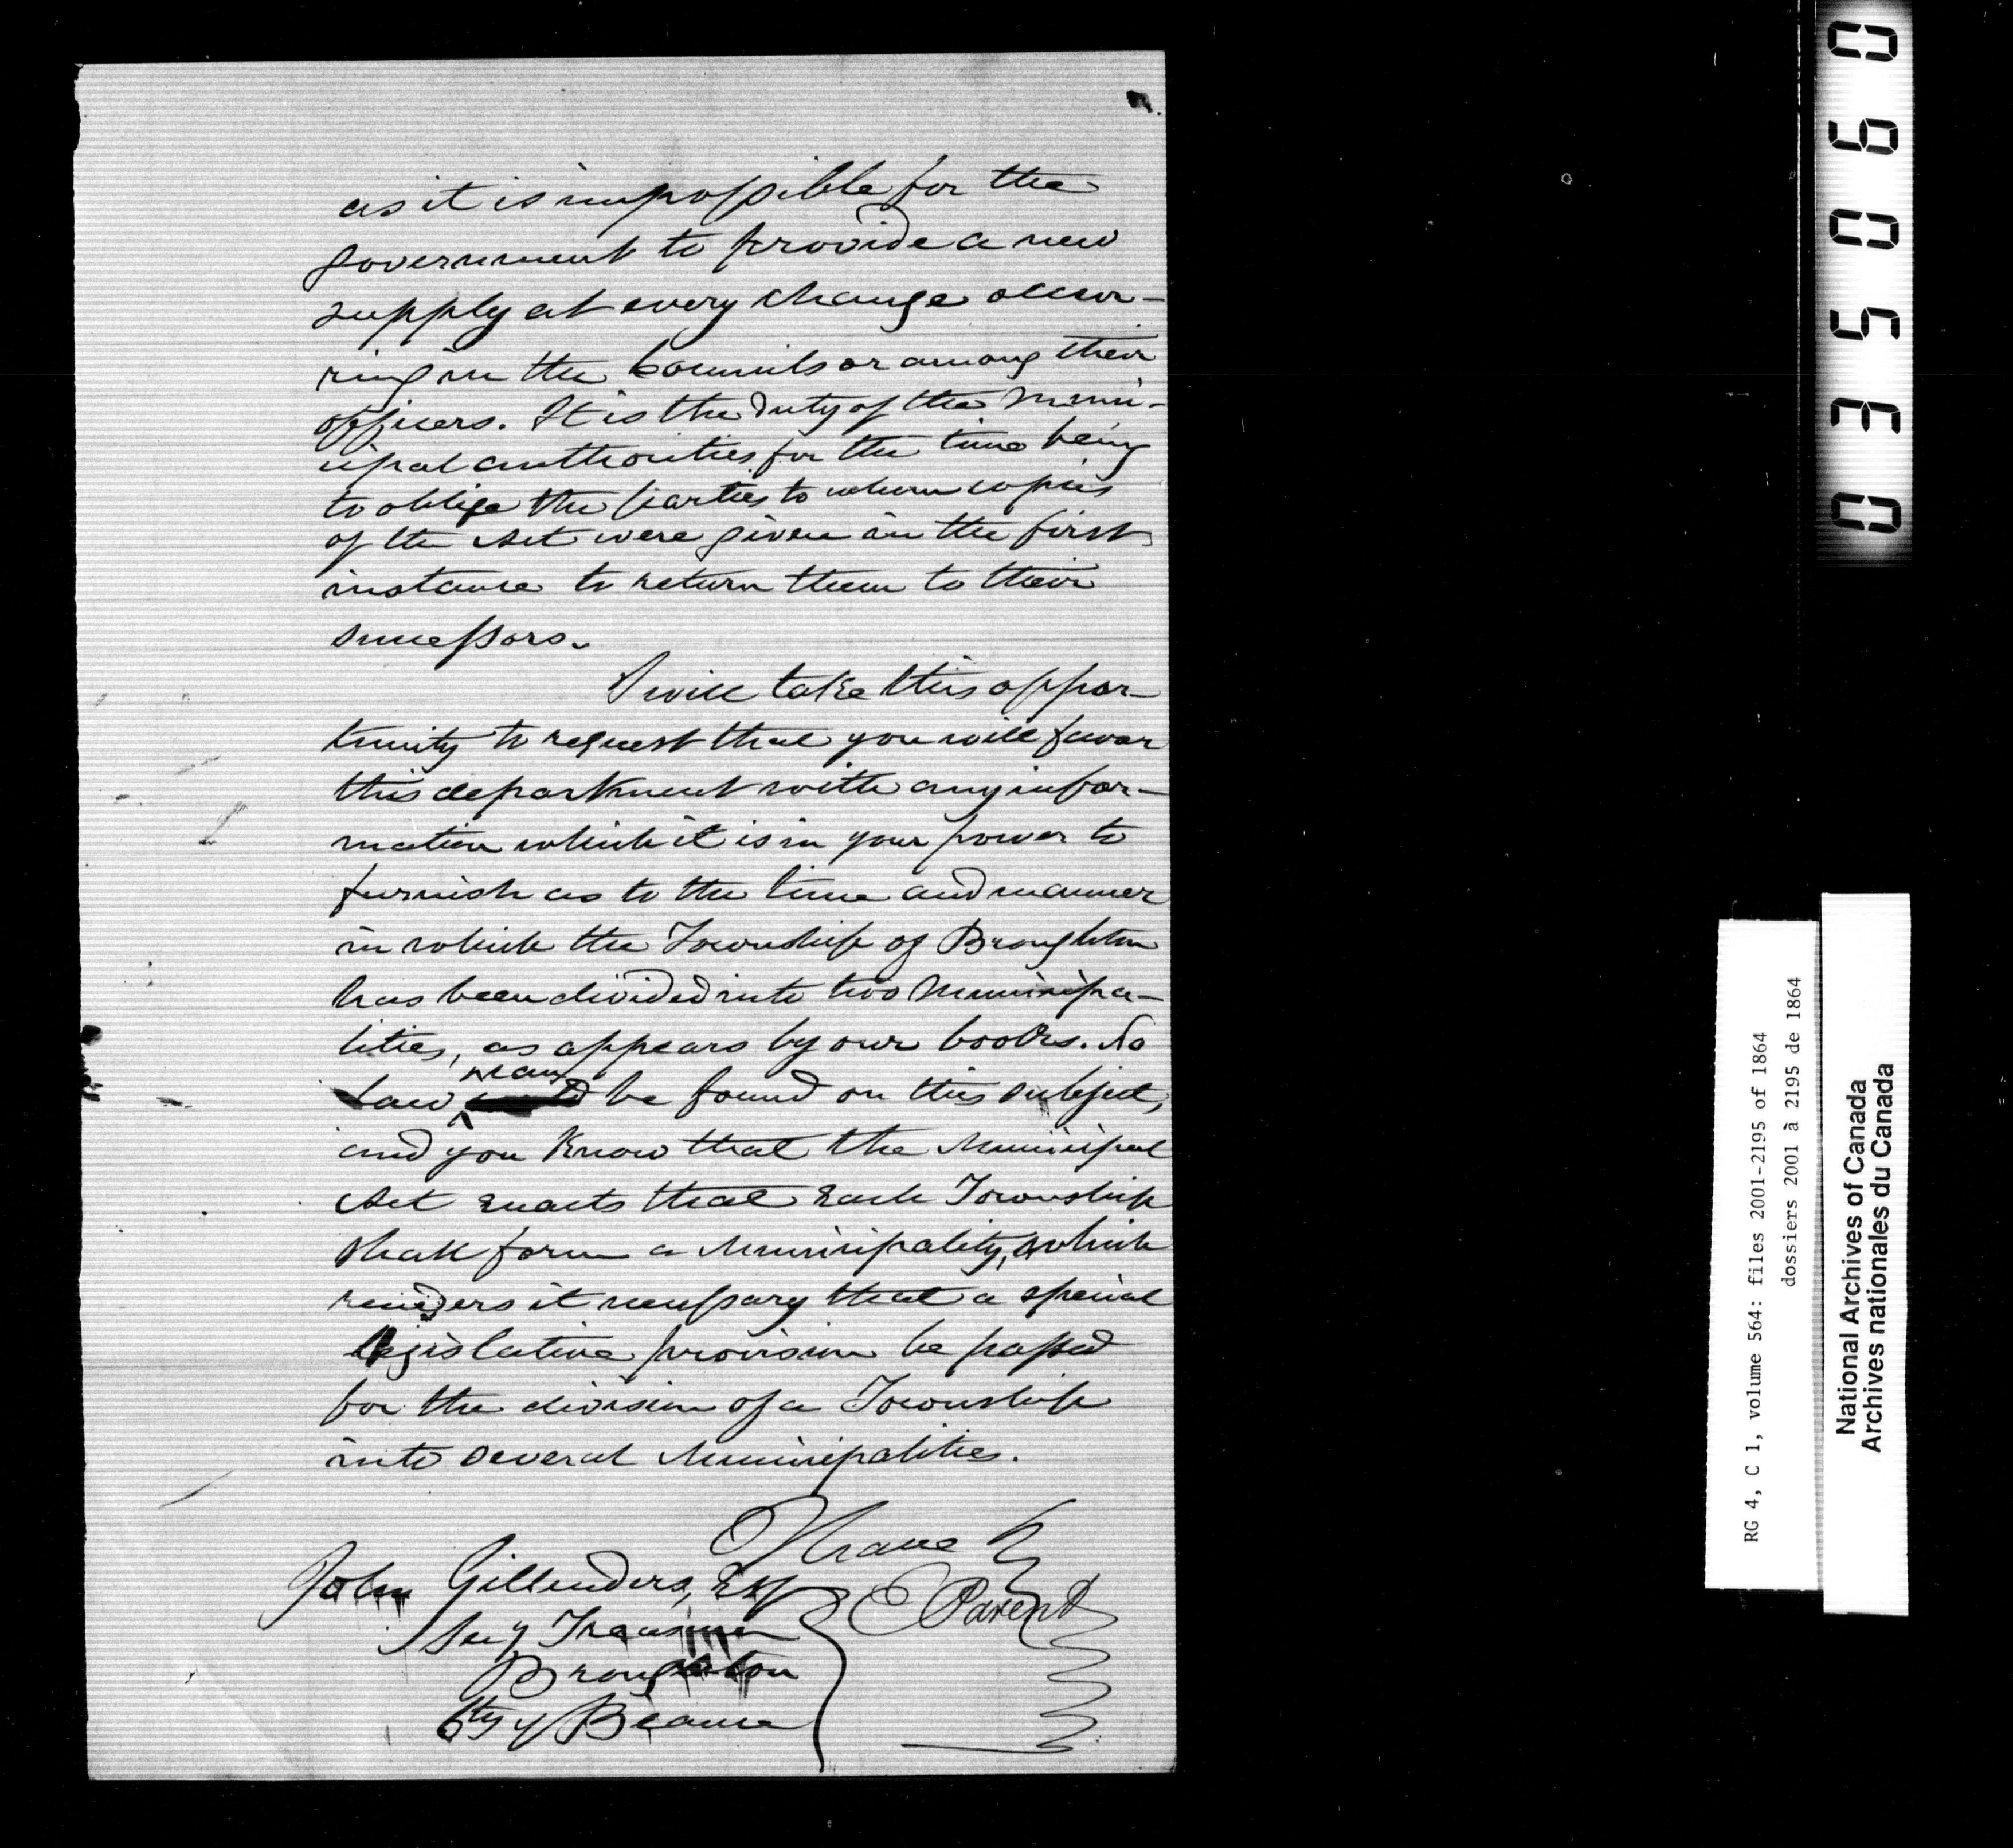 as it is impossible for the
government to provide a new
supply at every change occur-
ring in the Councils or among their
officers. It is the duty of the Muni-
cipal authorities for the time being
to oblige the parties to whom copies
of the Act were given in the first
instance to return them to their
successors.
I will take this oppor-
tunity to request that you will favor
this department with any infor-
mation which it is in your power to
furnish as to the time and manner
in which the Township of Broughton
has been divided into two Municipa-
lities, as appears by our books. No
law can be found on this subject,
and you know that the Municipal
Act enacts that each Township
shall form a Municipality, which
renders it necessary that a special
legislative provision be passed
for the division of a Township
into several Municipalities.
I have &
E Parent
John Gillenders, Esq
Secy Treasurer
Broughton
Cty of Beauce
035060
RG 4, C 1, volume 564: files 2001-2195 of 1864
dossiers 2001 à 2195 de 1864
National Archives of Canada
Archives nationales du Canada